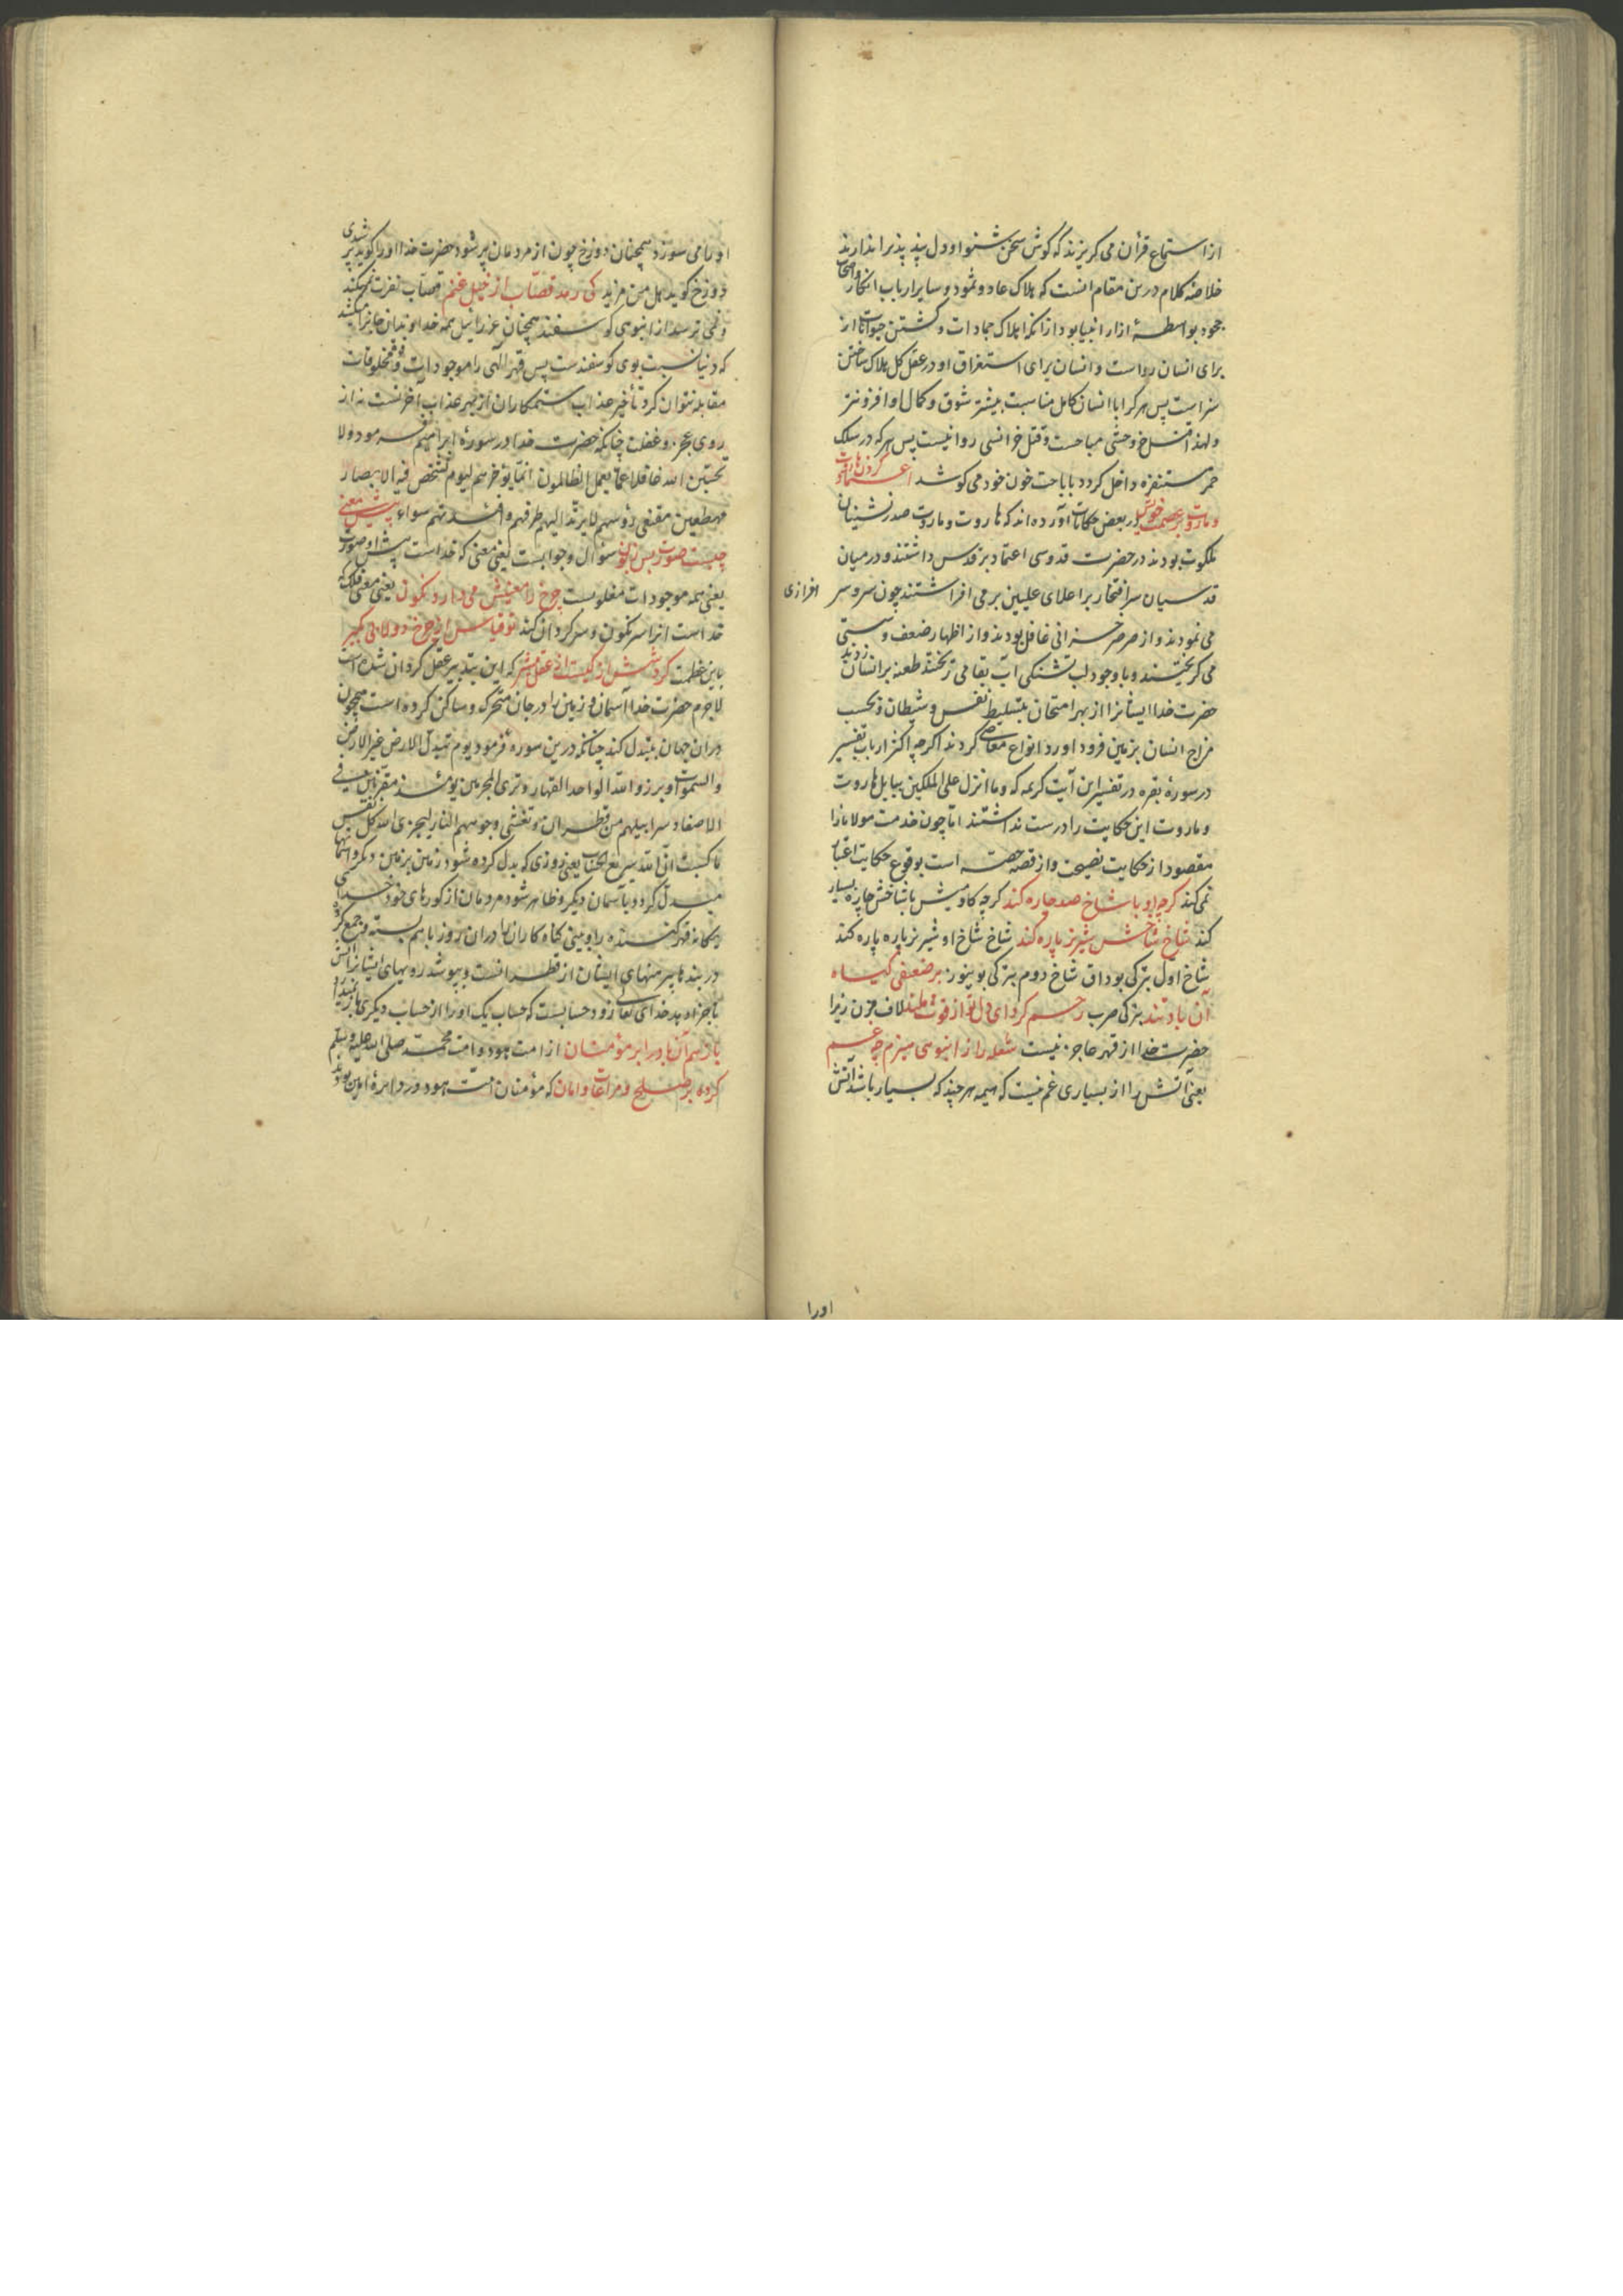 از استماع قرآن می کریزند که کوش سخن شنوا و دل پند پذیرا ندارند
خلاصهٔ کلام درین مقام انست که هلاک عاد و ثمود و سایر ارباب انکار واصحاب
جحود بواسطهٔ ازار انبیا بود از آنکه اهلاک جمادات و کشتن حیوانات از
برای انسان رواست و انسان برای استغراق او در عقل کل هلاک ساختن
سزاست پس هر کرا با انسان کامل مناسبت بیشتر شوق و کمال او افزونتر
ولهذا وحشی مباحست و قتل خر انسی روا نیست پس هر که در سلک
حمر مستنفره داخل کردد باباحت خون خود می کوشد اعتماد کردن هاروت
وماروت بر عصمت خویش در بعض حکایات آورده اند که هاروت و ماروت صدر نشینان
ملکوت بودند در حضرت قدوسی اعتماد بر قدس داشتند و در میان
قدسیان سر افتخار بر اعلای علیین بر می افراشتند چون سرو سر افرازی
می نمودند و از صرصر خزانی غافل بودند و از اظهار ضعف و سستی
می کریختند و با وجود لب تشنکی آب بقا می ریختند طعنه بر انسان زدند
حضرت خدا ایشانرا از بهر امتحان بتسلیط نفس و شیطان و بحسب
مزاج انسان بزمین فرود اورد انواع معاصی کردند اکرچه اکثر ارباب تفسیر
در سورهٔ بقره در تفسیر این آیت کریمه که وما انزل علی الملکین ببابل هاروت
وماروت این حکایت را درست نداشتند اما چون خدمت مولانا را
مقصود از حکایت نصیحت و از قصه حصه است بوقوع حکایت اعتبار
نمی کند کرچه او با شاخ صد چاره کند کرچه کاومیش با شاخش چاره بسیار
کند شاخ شاخش شیر نر پاره کند شاخ شاخ او شیر نر پاره پاره کند
شاخ اول بترکی بوداق شاخ دوم بترکی بوینوز بر ضعیفی کیاه
آن باد تند بترکی صرب رحم کرد ای دل تو از قوت ملند لاف مزن زیرا
حضرت خدا از قهر عاجز نیست شعله را ز انبوهی هیزم چه غم
یعنی آتش را از بسیاری غم نیست که هیمه هر چند که بسیار باشد آتش
اورا
اورا می سوزد همچنان دوزخ چون از مردمان پر شود حضرت خدا اورا کوید پر شدی
دوزخ کوید هل من مزید کی رمد قصاب از خیل غنم قصاب نفرت نمیکند
و نمی ترسد از انبوهی کوسفند همچنان عزرائیل همه خداوندان جانرا میکشد
که دنیا نسبت بوی کوسفندست پس قهر الهی را موجودات و مخلوقات
مقابله نتوان کرد تأخیر عذاب ستمکاران از بهر عذاب آخرتست نه از
روی عجز و غفلت چنانکه حضرت خدا در سورهٔ ابراهیم فرمود ولا
تحسبن الله غافلا عما یعمل الظالمون انما یؤخرهم لیوم تشخص فیه الابصار
مهطعین مقنعی رؤسهم لا یرتد الیهم طرفهم وافئدتهم هواء پیش معنی
چیست صورت بس زبون سؤال و جوابست یعنی معنی که خداست پیش او صورت
یعنی همه موجودات مغلوبست چرخ را معنیش می دارد نکون یعنی معنی فلک که
خداست انرا سرنکون و سرکردان کند تو قیاس از چرخ دولابی بکیر
باین عظمت کردشش از کیست از عقل مشیر که این بتدبیر عقل کردان شده است
لاجرم حضرت خدا آسمان و زمین را در جهان متحرک و ساکن کرده است همچون
دران جهان مبتدل کند چنانکه درین سوره فرمود یوم تبدل الارض غیر الارض
والسموات وبرزوا لله الواحد القهار وتری المجرمین یومئذ مقرنین فی
الاصفاد سرابیلهم من قطران وتغشی وجوههم النار لیجزی الله کل نفس
ما کسبت ان الله سریع الحساب یعنی روزی که بدل کرده شود زمین بزمین دیکر و آسمانها
مبدل کردد بآسمان دیکر و ظاهر شود مردمان از کورهای خود خدای
یکانه قهر کننده را و بینی کناه کاران را دران روز باهم بسته و جمع کرده
در بندها پیرهنهای ایشان از قطرانست و بپوشد رویهای ایشانرا آتش
تا جزا دهد خدای تعالی زود حسابست که حساب یک اورا از حساب دیکری باز نمیدارد
باز سم آن باد را بر مؤمنان از امت هود و امت محمد صلی الله علیه وسلم
کرده بر صلح و مراعات و امان که مؤمنان امت هود در دایرهٔ ایمن بودند